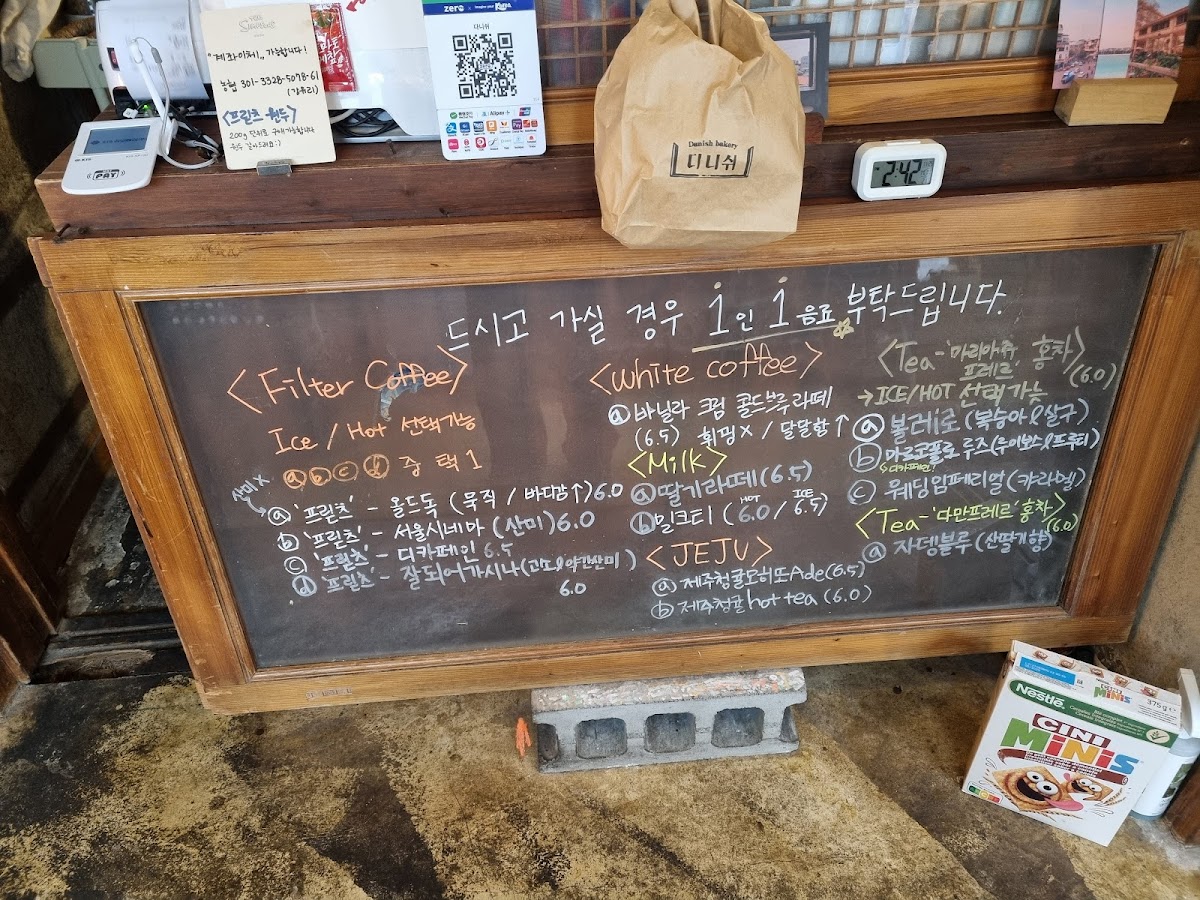 "계좌이체" 가능합니다!
농협 301-3328-5078-61
<프릳츠 원두>
200g 단위로 구매가능합니다
원두 갈아드려요:)
zero
디니쉬
Alipay+
PAY
Danish bakery
디니쉬
2:42
드시고 가실 경우 1인 1음료 부탁드립니다.
<Filter Coffee>
Ice / Hot 선택가능
ⓐⓑⓒⓓ 중 택1
산미X
ⓐ '프릳츠' - 올드독 (묵직 / 바디감↑) 6.0
ⓑ '프릳츠' - 서울시네마 (산미) 6.0
ⓒ '프릳츠' - 디카페인 6.5
ⓓ '프릳츠' - 잘되어가시나(과일&약간산미)
6.0
<white coffee>
ⓐ 바닐라 크림 콜드브루 라떼
(6.5) 휘핑X / 달달함↑
<Milk>
ⓐ 딸기라떼(6.5)
ⓑ 밀크티 (HOT 6.0 / ICE 6.5)
<JEJU>
ⓐ 제주청귤모히또Ade(6.5)
ⓑ 제주청귤 hot tea (6.0)
<Tea-'마리아쥬 프레르' 홍차>
(6.0)
→ICE/HOT 선택가능
ⓐ 볼레로 (복숭아&살구)
ⓑ 마르코폴로 루즈(루이보스&프루티)
↳디카페인!
ⓒ 웨딩임페리얼 (캬라멜)
<Tea-'다만프레르' 홍차>
(6.0)
ⓐ 자뎅블루 (산딸기향)
Nestlé
CINI
MiNiS
CINI MINIS
375g